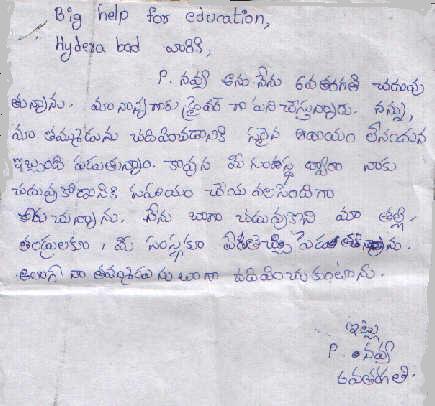 Big help for education,
Hydera bad వారికి,
P. నవ్య అను నేను 6వ తరగతి చదువు
తున్నాను. మా నాన్న గారు పని చేస్తున్నారు. నన్ను,
మా తమ్ముడును చదివించడానికి సరైన ఆదాయం లేనందున
ఇబ్బంది పడుతున్నాం. కావున మీ సంస్థ ద్వారా నాకు
చదువుకోటానికి సహాయం చేయ గలసిందిగా
కోరుచున్నాను. నేను బాగా చదువుకొని మా తల్లి
తండ్రులకూ, మీ సంస్థకూ పేరు తెచ్చి
అలాగే నా తమ్ముడును బాగా చదివించుకుంటాను.
ఇట్లు
P. నవ్య
6వ తరగతి.